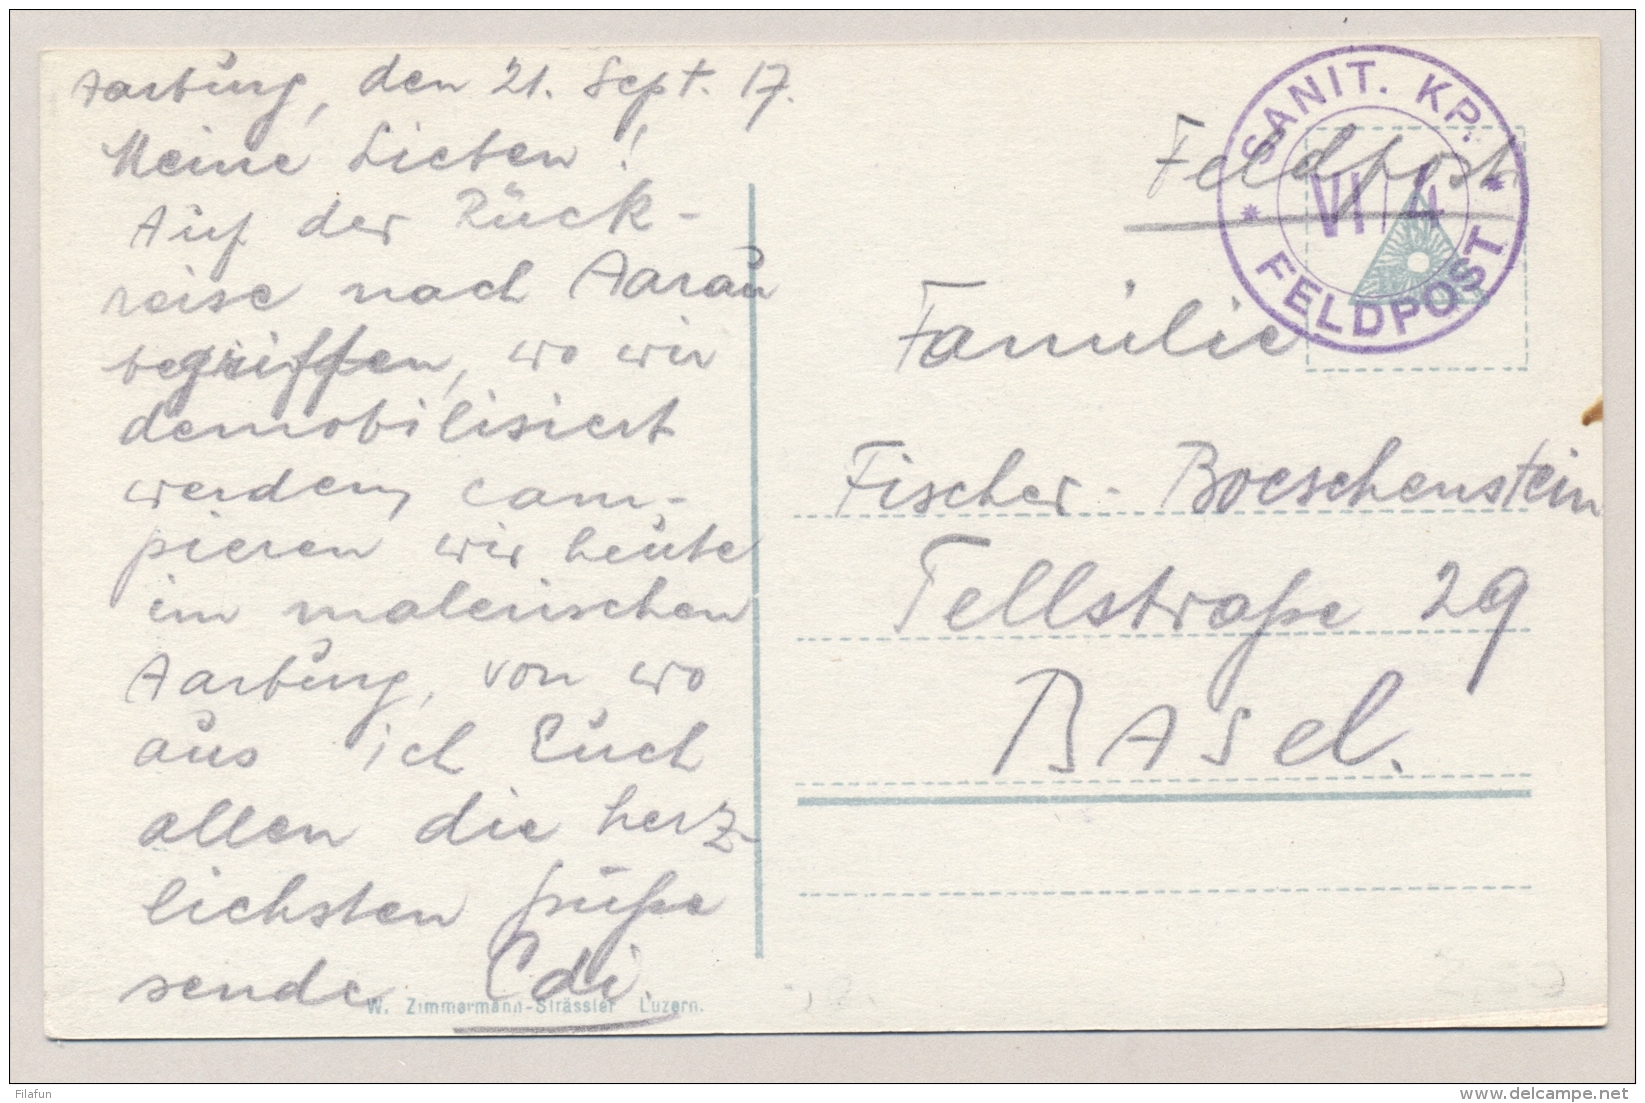 Aarburg, den 21. Sept. 17.
Meine Lieben!
Auf der Rück-
reise nach Aarau
begriffen, wo wir
demobilisiert
werden, cam-
pieren wir heute
im malerischen
Aarburg, von wo
aus ich Euch
allen die herz-
lichsten Grüße
sende Edi.
W. Zimmermann-Strässler Luzern.
SANIT. KP.
VI/4
* FELDPOST *
Feldpost
Familie
Fischer-Boeschenstein
Tellstraße 29
BASel.
Filafun
www.delcampe.net